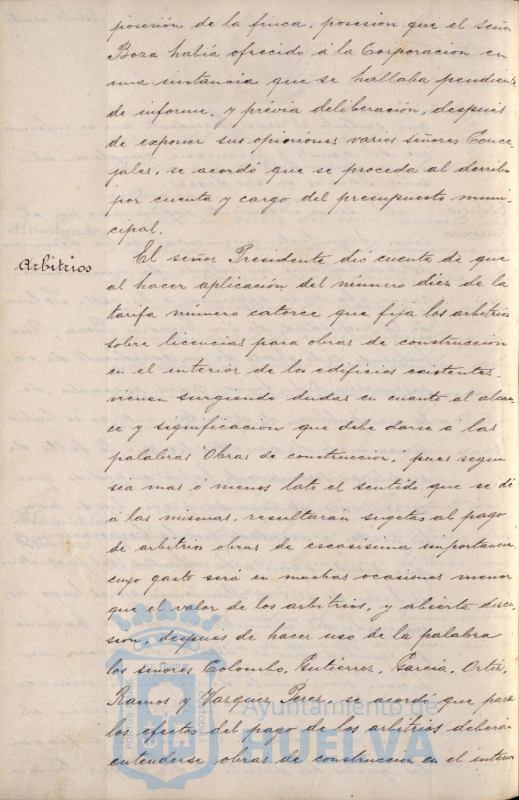 posesión de la finca, posecion que el señor
Boza habia ofrecido á la Corporacion en
una instancia que se hallaba pendiente
de informe, y prévia deliberación, despues
de exponer sus opiniones varios señores Conce-
jales, se acordó que se proceda al derribo
por cuenta y cargo del presupuesto muni-
cipal.
Arbitrios
El señor Presidente dió cuenta de que
al hacer aplicación del número diez de la
tarifa número catorce que fija los arbitrios
sobre licencias para obras de construccion
en el interior de los edificios existentes
vienen surgiendo dudas en cuanto al alcan-
ce y significación que debe darse á las
palabras "Obras de construccion," pues segun
sea mas ó menos lato el sentido que se dé
á las mismas, resultarán sugetas al pago
de arbitrio obras de escasisima importancia
cuyo gasto será en muchas ocasiones menor
que el valor de los arbitrios, y abierta discu-
sión, despues de hacer uso de la palabra
los señores Colombo, Gutierrez, Garcia, Ortiz,
Ramos y Vazquez Perez, se acordó que para
los efectos del pago de los arbitrios deberán
entenderse obras de construccion en el interior
Ayuntamiento de
HUELVA